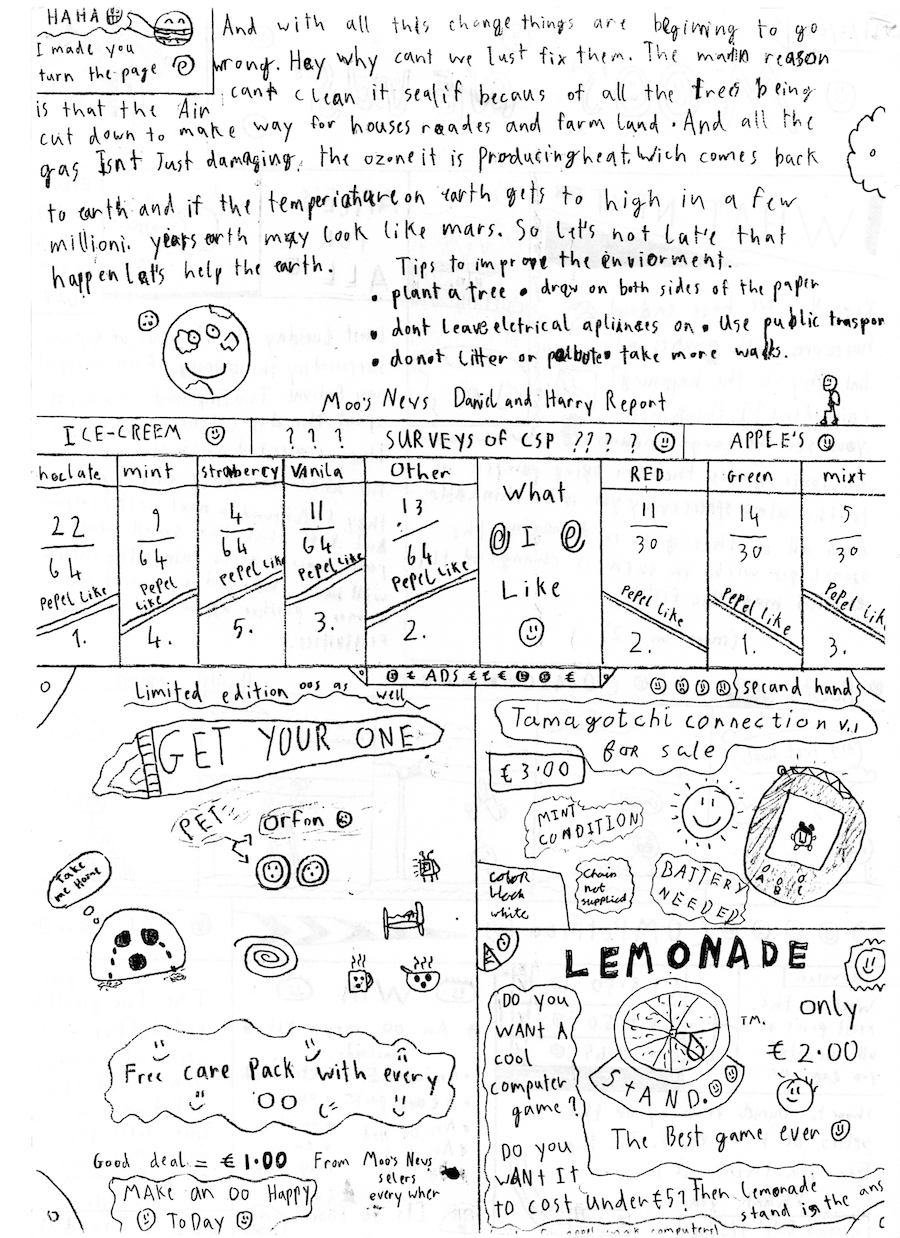 HAHA
I made you
turn the page
And with all this change things are begining to go
wrong. Hey why cant we Just fix them. The main reason
is that the Air cant clean it sealif becaus of all the trees being
cut down to make way for houses roades and farm land. And all the
gas Isnt Just damaging, the ozone it is Producing heat. Wich comes back
to earth and if the temperiature on earth gets to high in a few
millioni. years earth may look like mars. So Let's not Late that
happen Let's help the earth.
Tips to improve the enviorment.
• plant a tree • draw on both sides of the paper
• dont leave eletrical apliinces on • Use public trasport
• do not litter or polbote • take more walks.
Moo's News David and Harry Report
ICE-CREEM ? ? ? SURVEYS of CSP ?? ? ? APPLE'S
hoclate mint strabercy Vanila Other What I Like RED Green mixt
22/64 9/64 4/64 11/64 13/64 11/30 14/30 5/30
PePel Like PePel Like PePel Like PePel Like PePel Like PePel Like PePel Like PePel Like
1. 4. 5. 3. 2. 2. 1. 3.
€ ADS € € € €
Limited edition oos as well
GET YOUR ONE
PET
Orfon
Take
me Home
Free care Pack with every
OO
Good deal = €1.00 From Moo's Nevs
selers
every wher
MAke an OO Happy
ToDay
second hand
Tamagotchi connection v.1
for sale
€3.00
MINT
CONDITION
color
black
white
Chain
not
supplied
BATTERY
NEEDED
A B C
LEMONADE
STAND.
TM.
only
€2.00
The Best game ever
Do you
WANT A
cool
computer
game?
Do you
WANT It
to cost under €5? Then Lemonade
stand is the ans